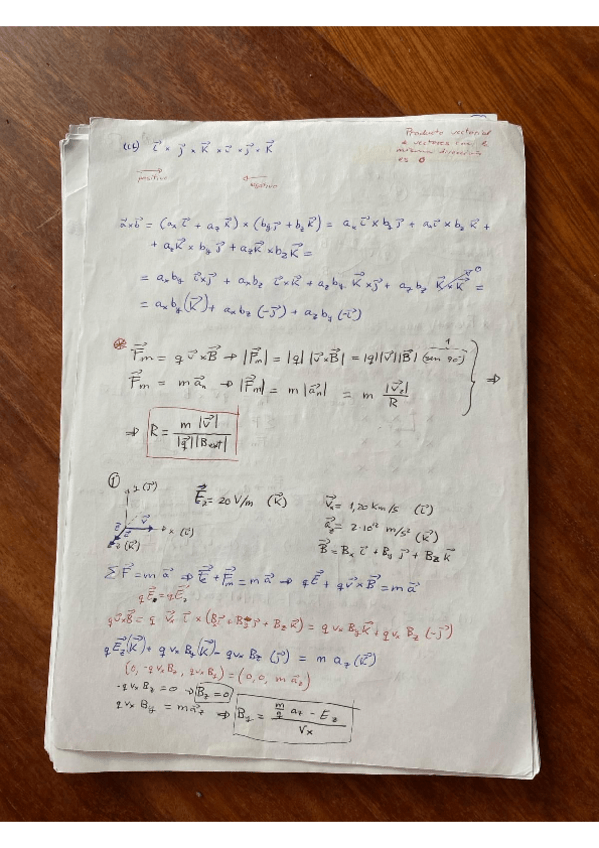 Producto vectorial
a vectores con
misma dirección
es 0
i⃗ × j⃗ × k⃗ × i⃗ × j⃗ × k⃗
positivo
a⃗×b⃗ = (aₓ i⃗ + a_z k⃗) × (b_y j⃗ + b_z k⃗) = aₓ i⃗ × b_y j⃗ + aₓ i⃗ × b_z k⃗ +
+ a_z k⃗ × b_y j⃗ + a_z k⃗ × b_z k⃗ =
= aₓ b_y i⃗×j⃗ + aₓ b_z i⃗×k⃗ + a_z b_y k⃗×j⃗ + a_z b_z k⃗×k⃗ = 0
= aₓ b_y (k⃗) + aₓ b_z (-j⃗) + a_z b_y (-i⃗)
F⃗m = q v⃗×B⃗ → |F⃗m| = |q| |v⃗×B⃗| = |q||v⃗||B⃗| (sen 90º) 1
F⃗m = m a⃗n → |F⃗m| = m |a⃗n| = m |v⃗|/R ⇒
⇒ R = m |v⃗| / |q⃗||B⃗ext|
① y (j⃗) E⃗z = 20 V/m (k⃗) v⃗x = 1,20 km/s (i⃗)
v⃗ x (i⃗) a⃗z = 2·10¹² m/s² (k⃗)
z (k⃗) B⃗ = Bx i⃗ + By j⃗ + Bz k⃗
∑F⃗ = m a⃗ ⇒ F⃗e + F⃗m = m a⃗ ⇒ qE⃗ + qv⃗×B⃗ = m a⃗
qE⃗ = qE⃗z
qv⃗×B⃗ = q · v⃗x i⃗ × (Bx i⃗ + By j⃗ + Bz k⃗) = q vx By k⃗ + q vx Bz (-j⃗)
qE⃗z (k⃗) + q vx By (k⃗) - q vx Bz (j⃗) = m az (k⃗)
(0, -q vx Bz, q vx By) = (0, 0, m a⃗z)
-q vx Bz = 0 → Bz = 0
q vx By = m a⃗z ⇒ By = (m/q az - Ez) / vx